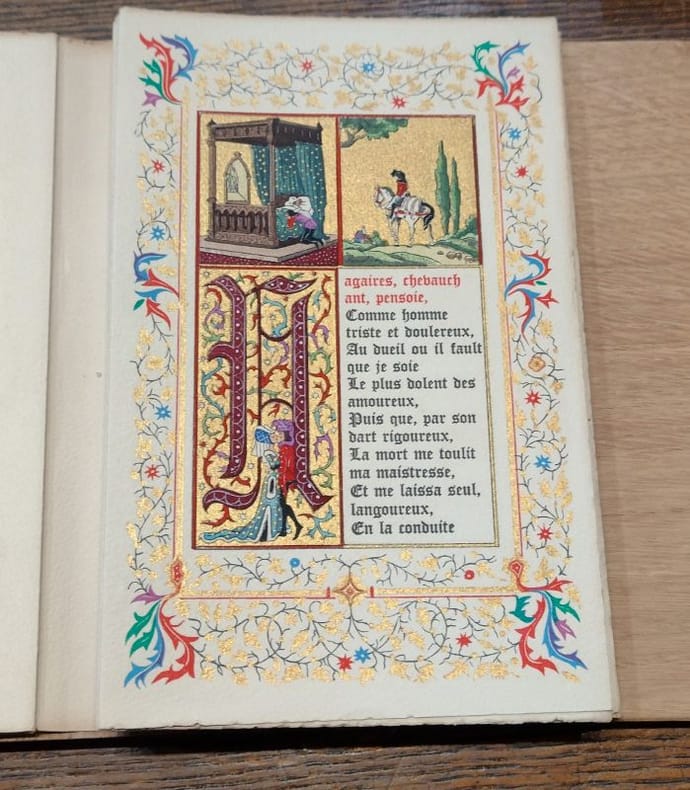 Nagaires, chevauch
ant, pensoie,
Comme homme
triste et doulereux,
Au dueil ou il fault
que je soie
Le plus dolent des
amoureux,
Puis que, par son
dart rigoureux,
La mort me toulit
ma maistresse,
Et me laissa seul,
langoureux,
En la conduite